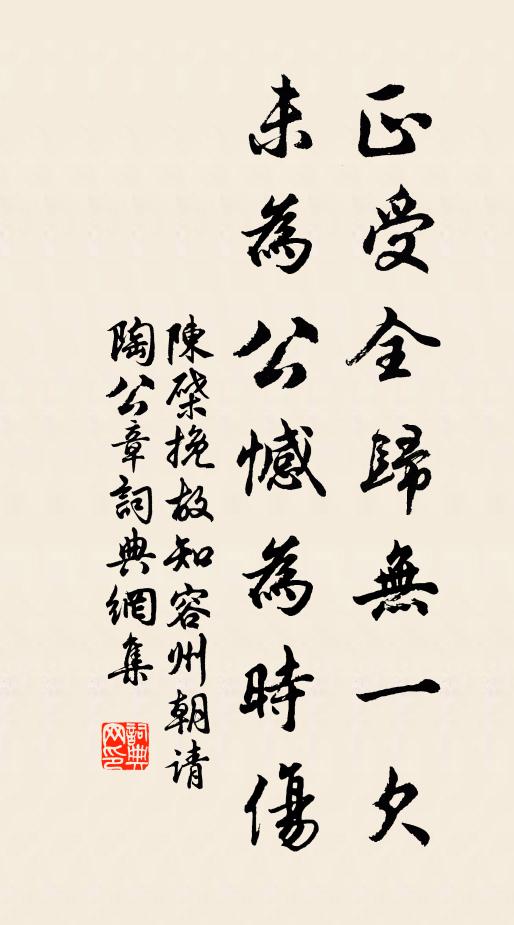 正受全歸無一欠
未為公憾為時傷
陳檗挽故知容州朝请
陶公章詞典網集
詞典网印